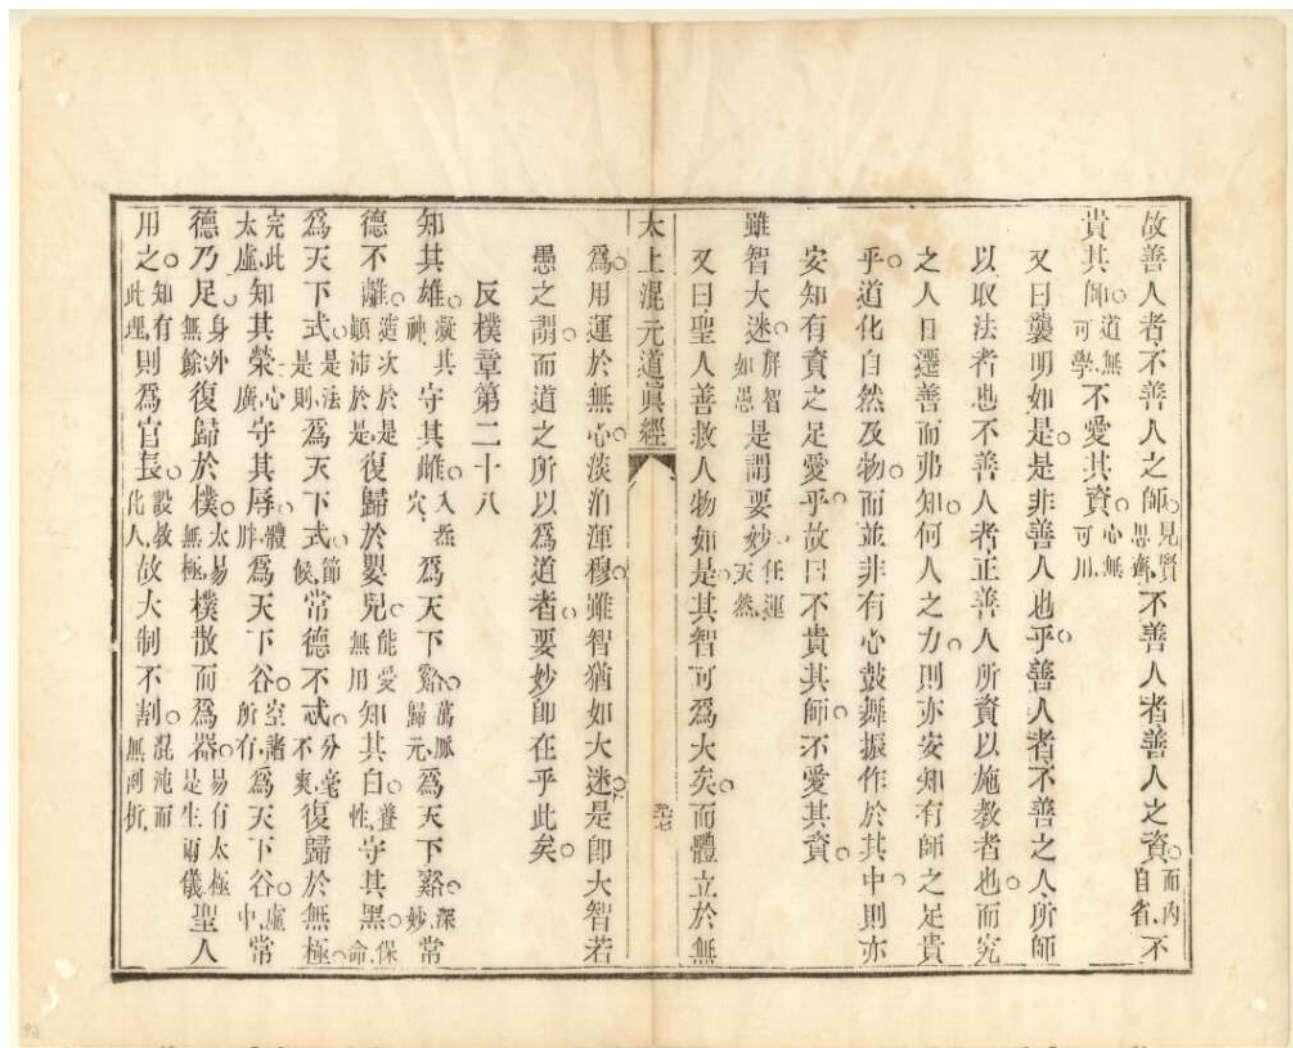 故善人者不善人之師見賢思齊不善人者善人之資而內自省不
貴其師道無可學不愛其資心無可用
又曰襲明如是是非善人也乎善人者不善之人所師
以取法者也不善人者正善人所資以施教者也而究
之人日遷善而弗知何人之力則亦安知有師之足貴
乎道化自然及物而並非有心鼓舞振作於其中則亦
安知有資之足愛乎故曰不貴其師不愛其資
雖智大迷屏智如愚是謂要妙任運天然
又曰聖人善救人物如是其智可為大矣而體立於無
太上混元道眞經
爲用運於無心淡泊渾穆雖智猶如大迷是卽大智若
愚之謂而道之所以爲道者要妙卽在乎此矣
反樸章第二十八
知其雄凝其神守其雌入炁穴爲天下谿萬脈歸元爲天下谿深妙常
德不離造次於是顚沛於是復歸於嬰兒能愛無用知其白養性守其黑保命
爲天下式是法是則爲天下式節候常德不忒分毫不爽復歸於無極
完此太虛知其榮心廣守其辱體胖爲天下谷空諸所有爲天下谷虛中常
德乃足身外無餘復歸於樸太易無極樸散而爲器易有太極是生兩儀聖人
用之知有此理則爲官長設教化人故大制不割混沌而無剖折